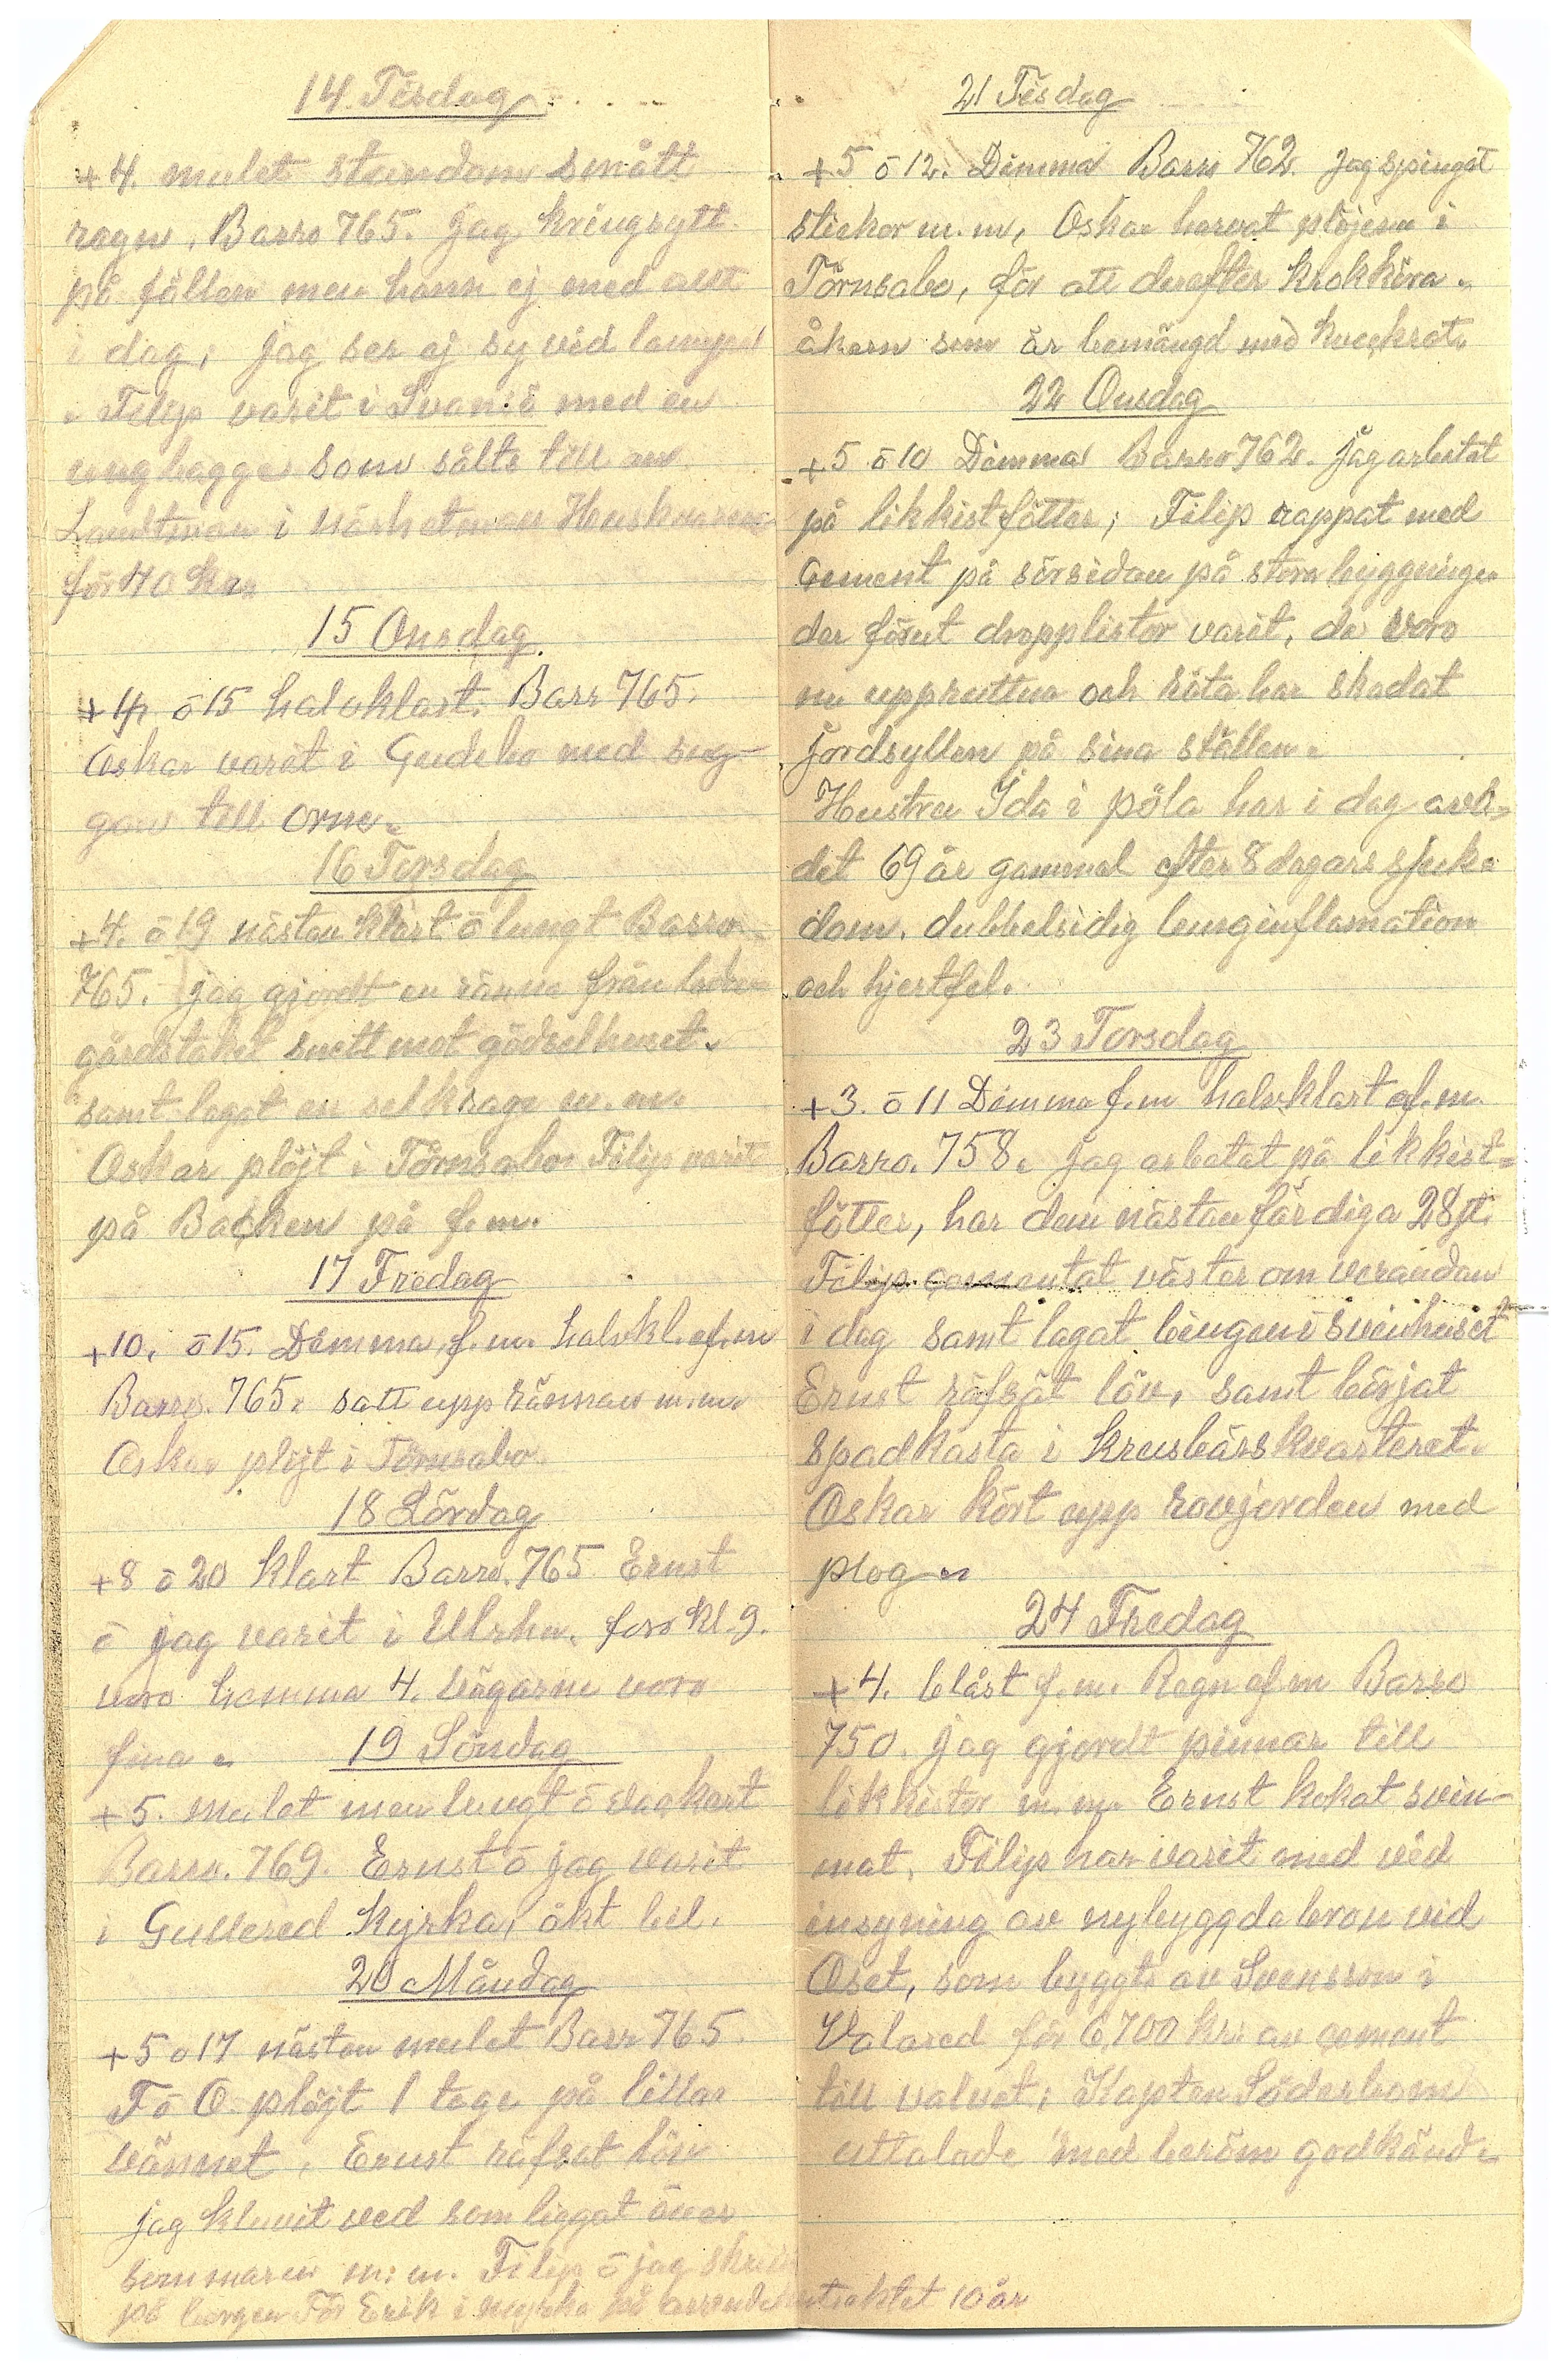 14 Tisdag
+4. mulet stundom smått
regn. Barro 765. Jag kringsytt
på fällen men hann ej med allt
i dag, jag ser ej sy vid lampa
. Filip varit i Svansö med en
unghagge som sålts till en
Landtman i närheten av Huskvarna
för 40 kr.
15 Onsdag
+ ō 15 halvklart. Barr 765.
Oskar varit i Gudebo med sug-
gan till orne.
16 Torsdag
+4. ō 19 nästan klart ō lungt Barro
765. jag gjordt en ränna från ladu-
gårdstaket snett mot gödselhuset.
samt lagat en selkrage m.m.
Oskar plöjt i Törnsabo Filip varit
på Backen på f.m.
17 Fredag
+10. ō 15. Dimma f.m. halvkl. ef.m
Barro. 765. satt upp rännan m.m.
Oskar plöjt i Törnsabo.
18 Lördag
+8 ō 20 klart Barro. 765 Ernst
ō jag varit i Ulrha. foro kl. 9.
voro hemma 4. vägarne voro
fina.
19 Söndag
+5. mulet men lungt ō vackert
Barro. 769. Ernst ō jag varit
i Gullered kyrka, åkt bil.
20 Måndag
+5 o 17 nästan mulet Barr 765.
F ō O plöjt 1 tege på lilla
vännet. Ernst räfsat löv
jag kluvit ved som liggat över
sommaren m.m. Filip ō jag skrev
på borgen För Erik i på arrendekontraktet 10 år
21 Tisdag
+5 ō 12. Dimma Barr 762. Jag spingat
stickor m.m, Oskar harvat plöjerna i
Törnsabo, för att derefter krokköra.
åkern som är bemängd med kveckrot.
22 Onsdag
+5 ō 10 Dimma Barro 762. Jag arbetat
på likkistfötter; Filip rappat med
Cement på sörsidan på stora byggningen
der förut dropplistor varit, de voro
nu uppruttna och röta har skadat
jordsyllen på sina ställen.
Hustru Ida i pöla har i dag avli-
det 69 år gammal efter 8 dagars sjuk-
dom. dubbelsidig lunginflamation
och hjertfel.
23 Torsdag
+3. ō 11 Dimma f.m halvklart ef.m.
Barro. 758. Jag arbetat på likkist-
fötter, har dem nästan färdiga 28 st.
Filip cementat väster om verandan
i dag samt lagat bingen i svinhuset
Ernst räfsat löv, samt börjat
spadkasta i krusbärskvarteret.
Oskar kört upp rovjorden med
plog.
24 Fredag
+4. blåst f.m. Regn ef.m Barro
750. jag gjordt pinnar till
likkistor m.m. Ernst kokat svin-
mat. Filip har varit med vid
insyning av nybyggda bron vid
Oset, som byggts av Svensson i
Valared för 6,700 kr. av cement
till valvet; Kapten Söderbom
uttalade med beröm godkänd.